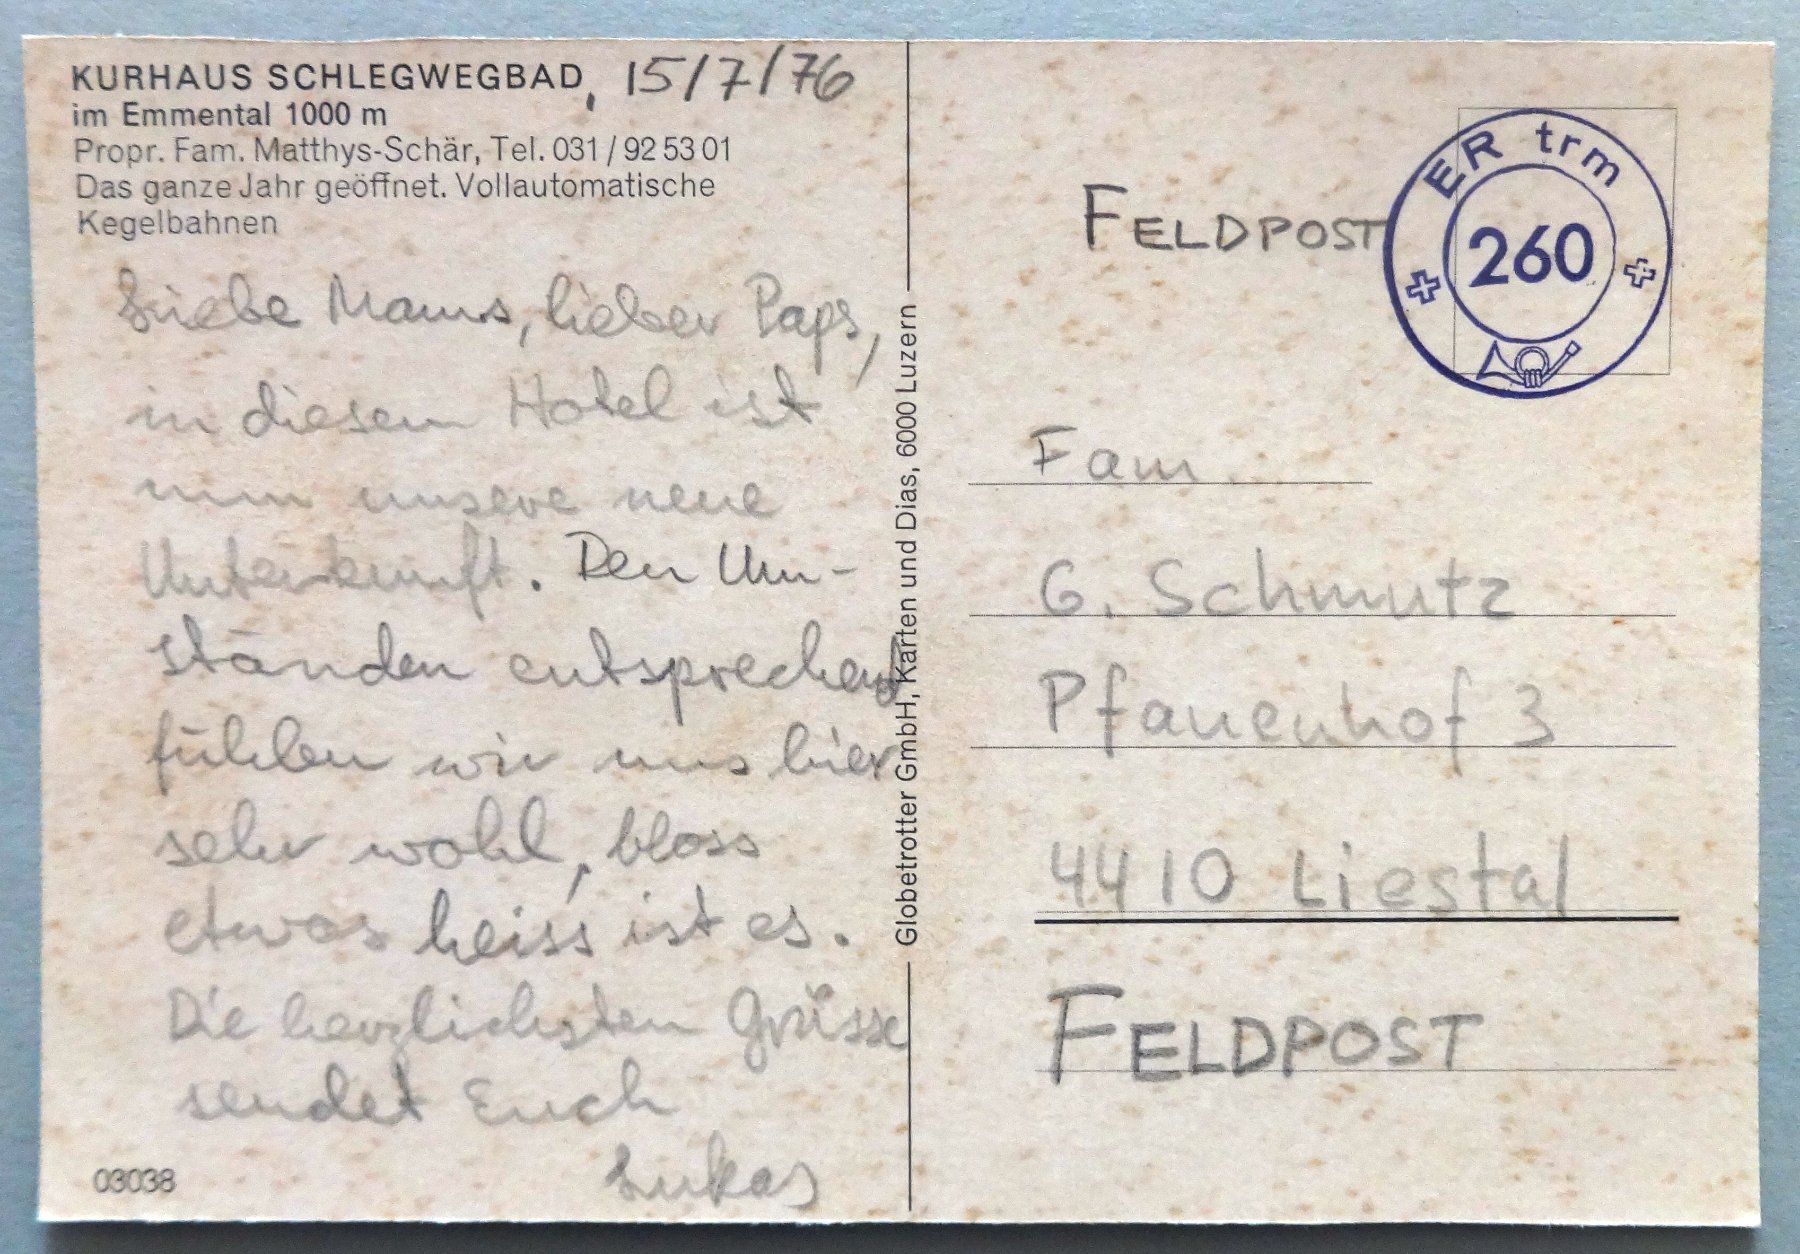 KURHAUS SCHLEGWEGBAD, 15/7/76
im Emmental 1000 m
Propr. Fam. Matthys-Schär, Tel. 031/92 53 01
Das ganze Jahr geöffnet. Vollautomatische
Kegelbahnen
Liebe Mams, lieber Paps,
in diesem Hotel ist
nun unsere neue
Unterkunft. Den Um-
ständen entsprechend
fühlen wir uns hier
sehr wohl, bloss
etwas heiss ist es.
Die herzlichsten Grüsse
sendet Euch
Lukas
03038
Globetrotter GmbH, Karten und Dias, 6000 Luzern
FELDPOST
ER trm
260
Fam.
G. Schmutz
Pfauenhof 3
4410 Liestal
FELDPOST